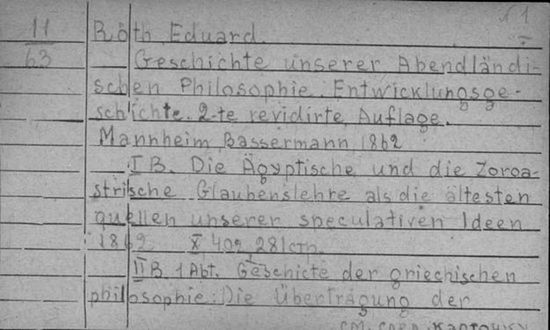 11 Röth Eduard. 1
63 Geschichte unserer Abendländi-
schen Philosophie. Entwicklungsge-
schichte. 2-te revidirte Auflage.
Mannheim Bassermann 1862
I B. Die Ägyptische und die Zoroa-
strische Glaubenslehre als die ältesten
quellen unserer speculativen Ideen
1862 X 281 стр.
II B. 1 Abt. Geschicte der griechischen
philosophie: Die Übertragung der
см. след. карточку